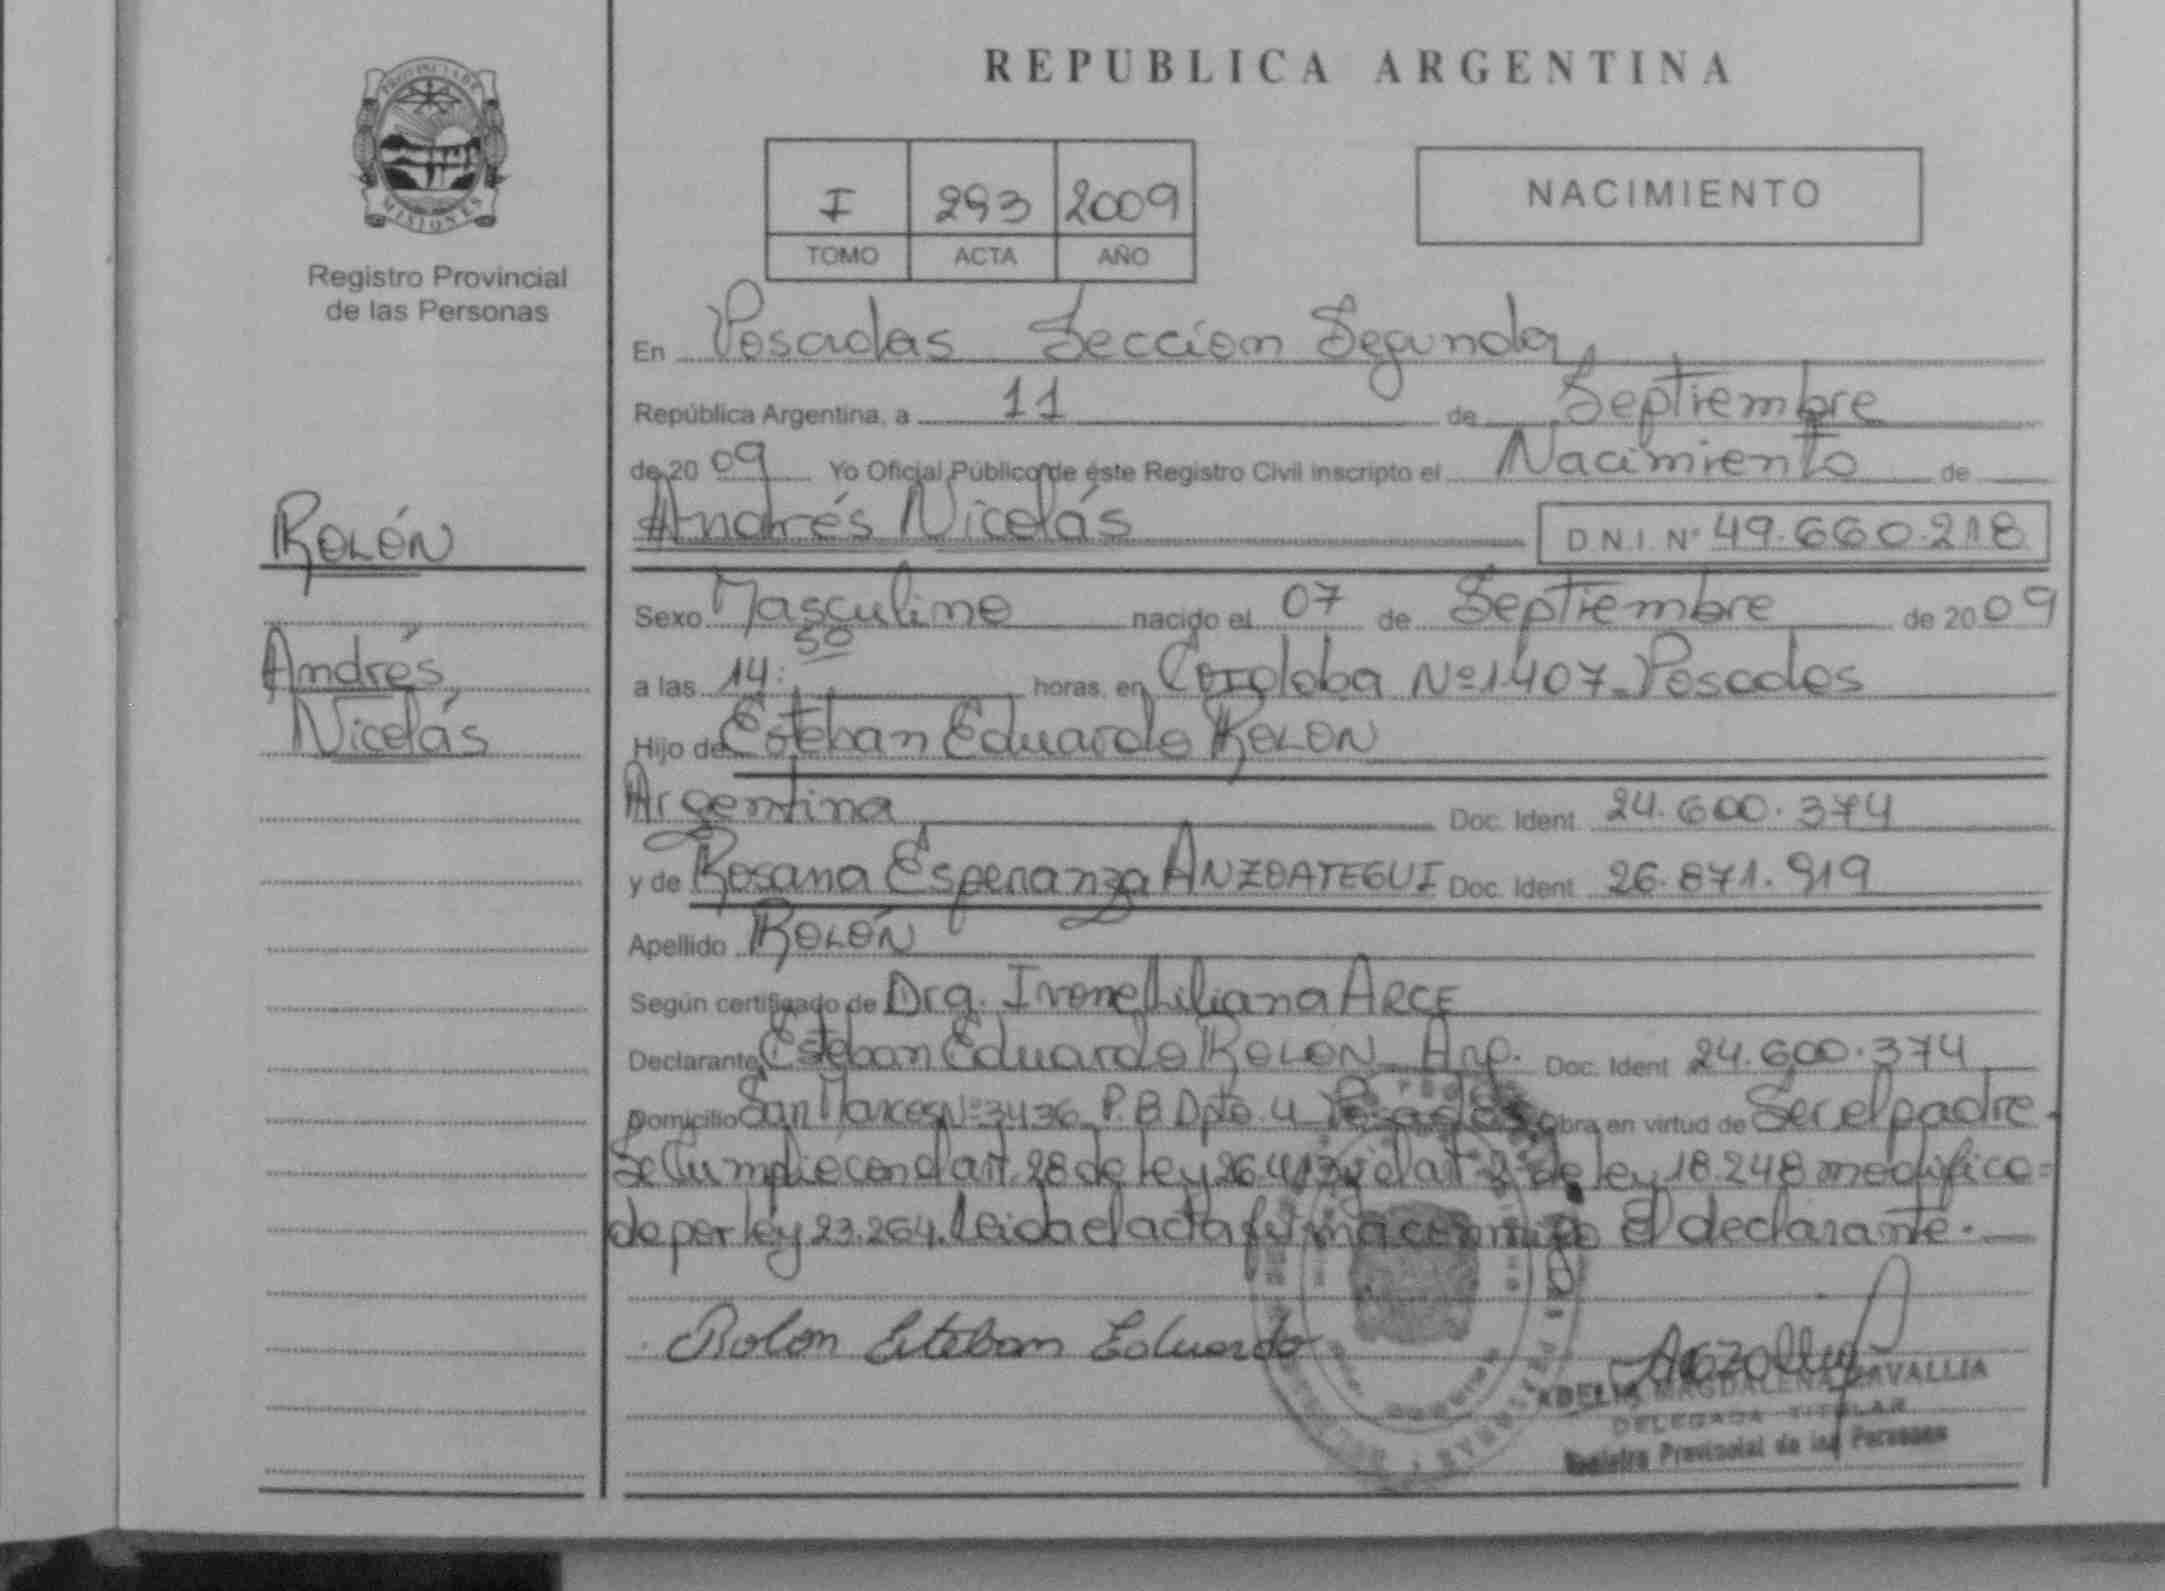 REPUBLICA ARGENTINA
PROVINCIA DE
MISIONES
Registro Provincial
de las Personas
I 293 2009
TOMO ACTA AÑO
NACIMIENTO
En Posadas Seccion Segunda,
República Argentina, a 11 de Septiembre
de 2009 Yo Oficial Público de éste Registro Civil inscripto el Nacimiento de
Andrés Nicolás D.N.I. Nº 49.660.218
ROLÓN
Andrés
Nicolás
Sexo Masculino nacido el 07 de Septiembre de 2009
a las 14:50 horas, en Córdoba Nº 1407- Posadas
Hijo de Esteban Eduardo ROLON
Argentina Doc. Ident. 24.600.374
y de Rosana Esperanza ANZOATEGUI Doc. Ident. 26.871.919
Apellido ROLÓN
Según certificado de Dra. Ivone Liliana ARCE
Declarante Esteban Eduardo ROLON Arg. Doc. Ident 24.600.374
Domicilio San Marcos Nº 3436 P.B. Dpto. 4 Posadas Obra en virtud de Ser el padre.
Se Cumplie con el art. 28 de ley 26.413 y el art 2 de ley 18.248 modifica=
do por ley 23.264. Leida el acta firma conmigo El declarante.
Rolon Esteban Eduardo
ADELIA MAGDALENA RAVALLIA
DELEGADA TITULAR
Registro Provincial de las Personas